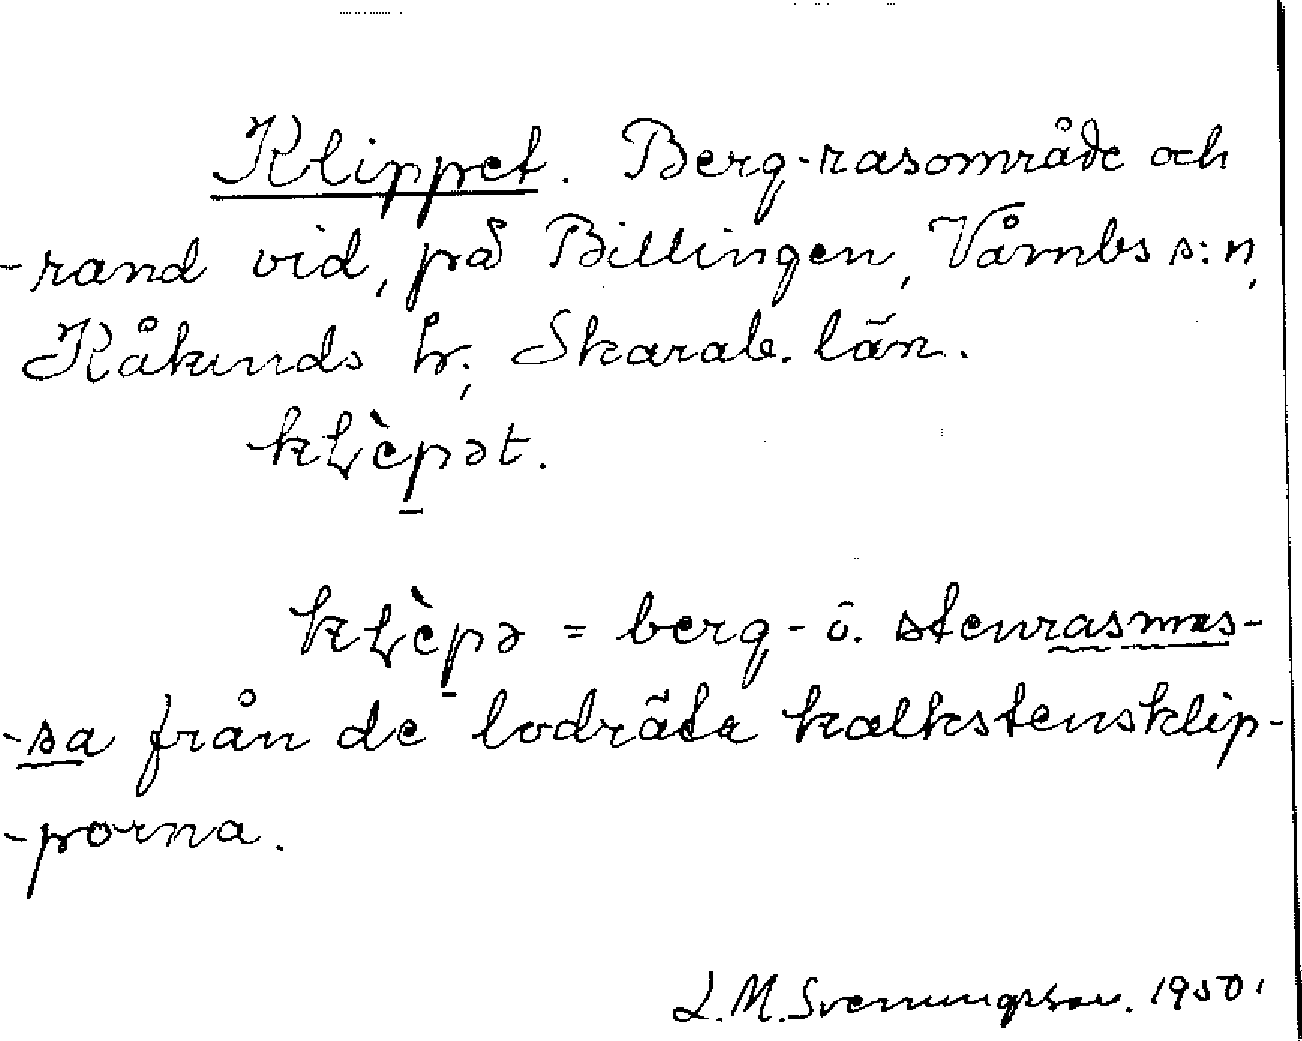 Klippet. Berg-rasområde och
-rand vid, på Billingen, Våmbs s:n,
Kåkinds hr; Skarab. län.
kⱢèp̠ət.
kⱢèp̠ə = berg- o. stenrasmas-
-sa från de lodräta kalkstensklip-
-porna.
L.M. Svenungsson. 1950.